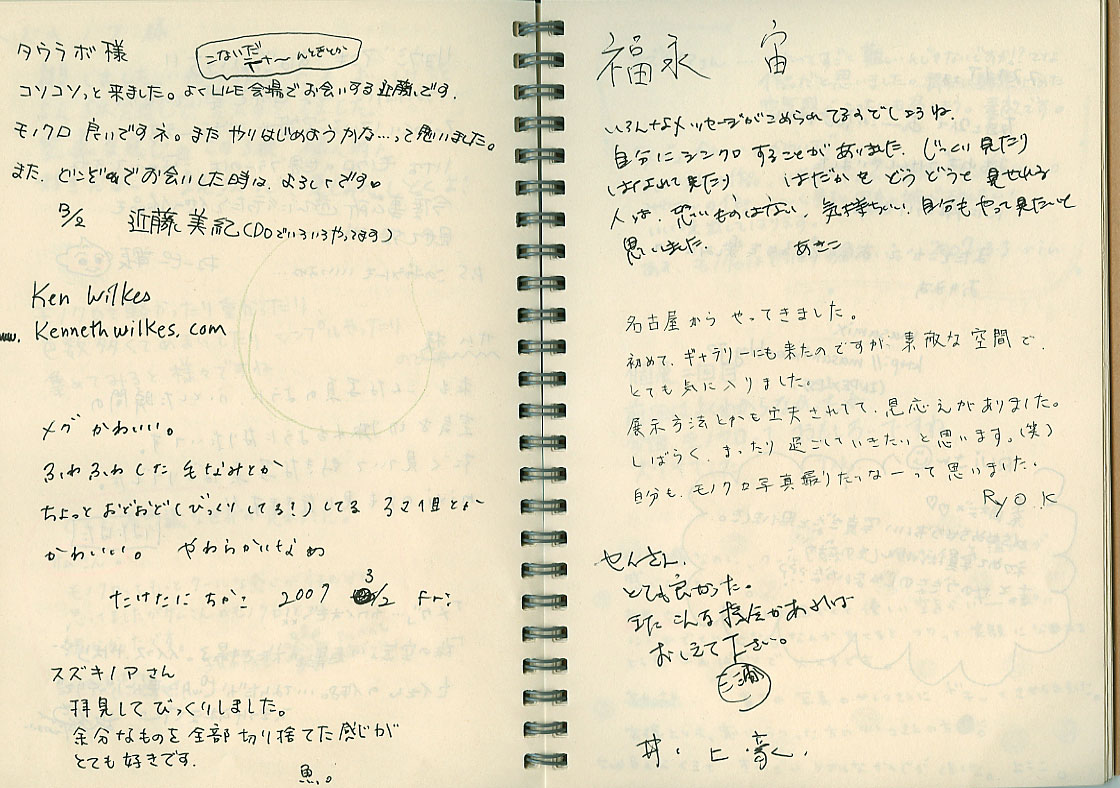 タウラボ様
こないだ
コソコソっと来ました。よくLIVE会場でお会いする近藤です.
モノクロ 良いですネ。また やりはじめようかな…って思いました。
また、どこどこかでお会いした時は、よろしくです。
3/2 近藤美紀(DOでいろいろやってます)
Ken Wilkes
www.Kennethwilkes.com
メグ かわいい。
ふわふわした 毛なみとか
ちょっと おどおど(びっくりしてる?)してる 3コ目とか
かわいい。 やわらかいなぁ
たけたに ちかこ 2007 3/2 Fri
スズキノアさん
拝見してびっくりしました。
余分なものを全部切り捨てた感じが
とても好きです.
魚。
福永 宙
いろんなメッセージがこめられてるのでしょうね.
自分にシンクロすることがありました. じっくり見たり
はなれて見たり はだかを どうどうと 見せれる
人は、悪いものはない. 気持ちいい. 自分もやって見たいと
思いました. あきこ
名古屋から やってきました。
初めて、ギャラリーにも来たのですが、素敵な空間で、
とても気に入りました。
展示方法とかも工夫されてて、見応えがありました。
しばらく、まったり過ごしていきたいと思います。(笑)
自分も、モノクロ写真撮りたいなーって思いました.
RYOK
せんさん.
とても良かった。
またこんな機会があれば
おしえて下さい。
井